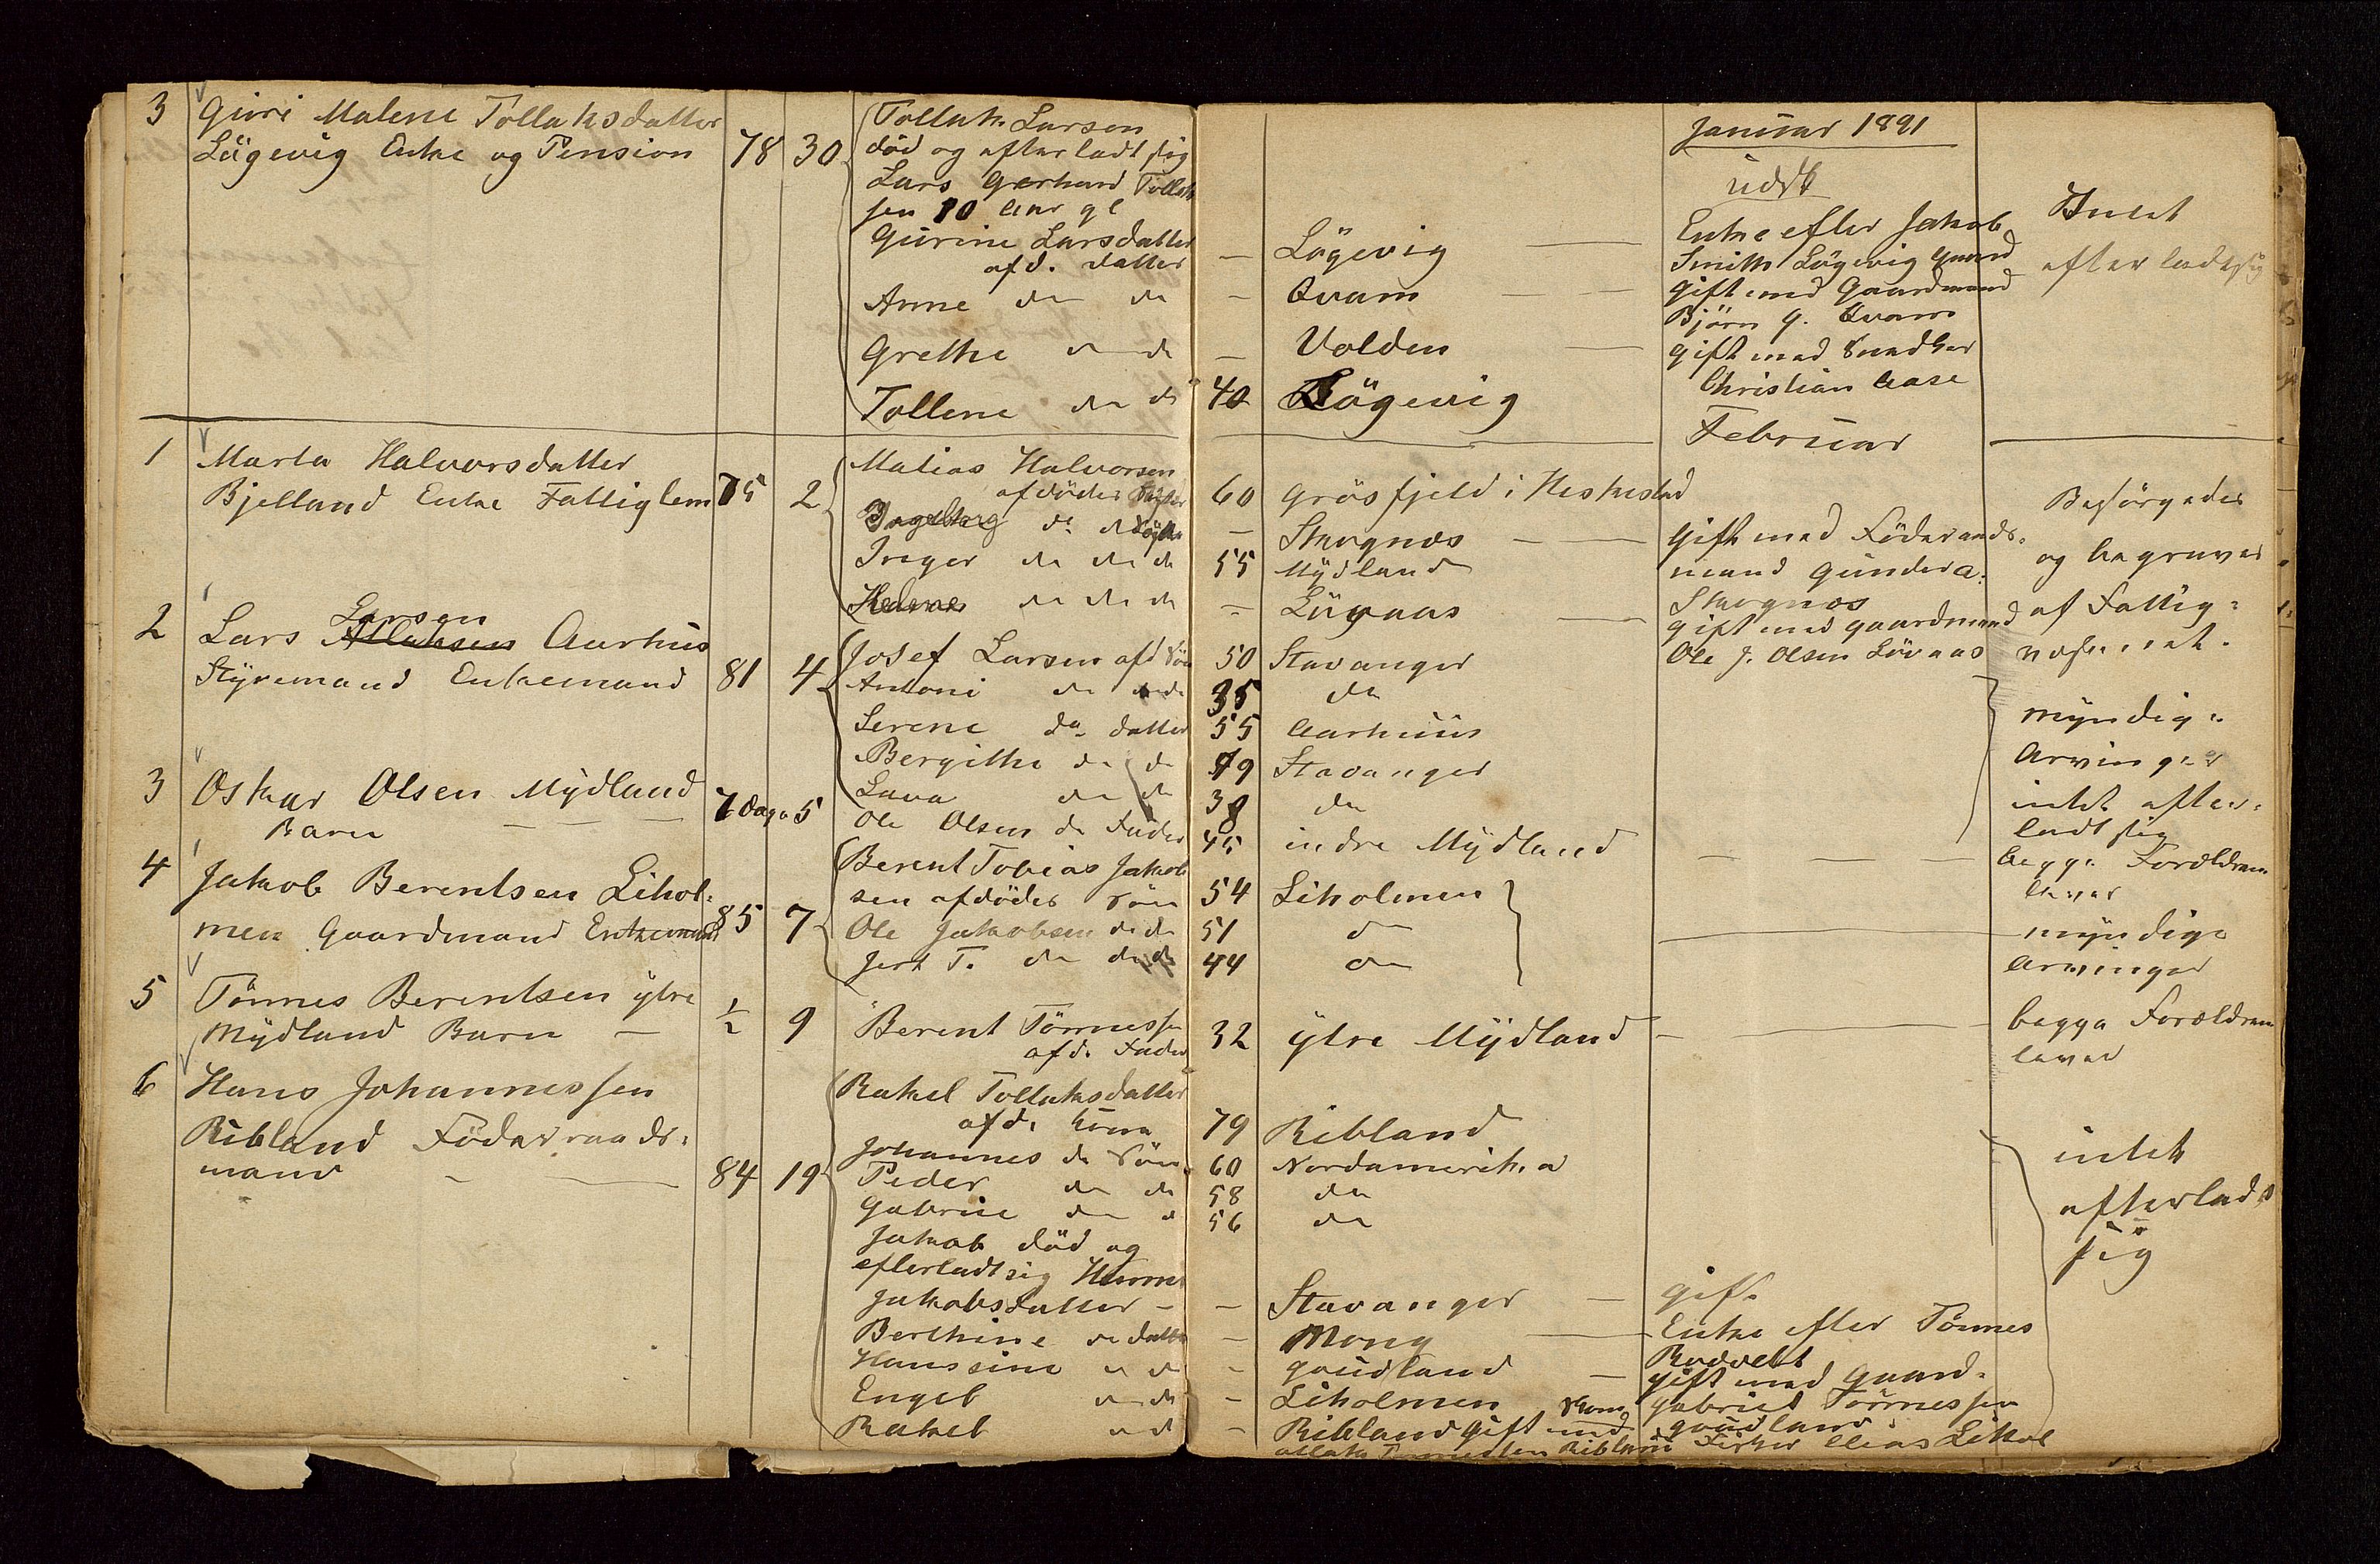 3 Guri Malene Tollaksdatter
Lögevig Enke og Pension 78 30
Tollak Larsen
död og efterladt sig
Lars Gerhard Tollak
sen 10 Aar gl
Gurine Larsdatter
afd. datter
Anne do do
Grethe do do
Tollene do do
1 Marta Halvorsdatter
Bjelland Enke Fattiglem 75 2
Matias Halvorsen
afdödes
Ingeborg do
Inger do do do
Helene do do do
2 Lars Larsen Aarhus
Styremand Enkemand 81 4
Josef Larsen afd Sön
Antoni do do do
Serene do datter
Bergithe do do
Lava do do
3 Oskar Olsen Mydland
Barn 7 Dage 5
Ole Olsen do Fader
4 Jakob Berentsen Lihol-
men Gaardmand Enkemand 85 7
Berent Tobias Jakob
sen afdödes Sön
Ole Jakobsen do do
Gert T. do do do
5 Tönnes Berentsen ytre
Mydland Barn ½ 9
Berent Tönnessen
afd. Fader
6 Hans Johannessen
Ribland Föderaads-
mand 84 19
Rakel Tollaksdatter
afd. kona
Johannes do Sön
Peder do do
Gabriel do do
Jakob död og
efterladt sig Hanne
Jakobsdatter
Berthine do datter
Hanssine do do
Engel do do
Rakel do do
Januar 1891
udsk
– Lögevig
Enke efter Jakob
Smith Lögevig Gaard
– Qvam
gift med Gaardmand
Björn G. Qvam
– Volden
gift med Snedker
Christian Aase
40 Lögevig
Intet
efterladt sig
Februar
60 Grösfjeld i Heskestad
– Stavgnos
gift med Föderaads-
mand Gunder A.
Stavgnos
55 Mydland
– Lövaas
gift med gaardmand
Ole J. Olsen Lövaas
Besörgedes
og begraves
af Fattig-
væsenet.
50 Stavanger
35 do
55 Aarhuus
49 Stavanger
38 do
myndige
Arvinger
intet efter-
ladt sig
45 indre Mydland
begge Forældrene
lever
54 Liholmen
51 do
44 do
myndige
Arvinger
32 ytre Mydland
begge Forældrene
lever
79 Ribland
60 Nordamerika
58 do
56 do
intet
efterladt
sig
– Stavanger gift
– Mong
Enke efter Tönnes
Rodvelt
– Goudland
gift med Gaard-
Gabriel Tönnessen
Goudland
– Liholmen
– Ribland Gift med
Ribland Fisker Elias Lihol